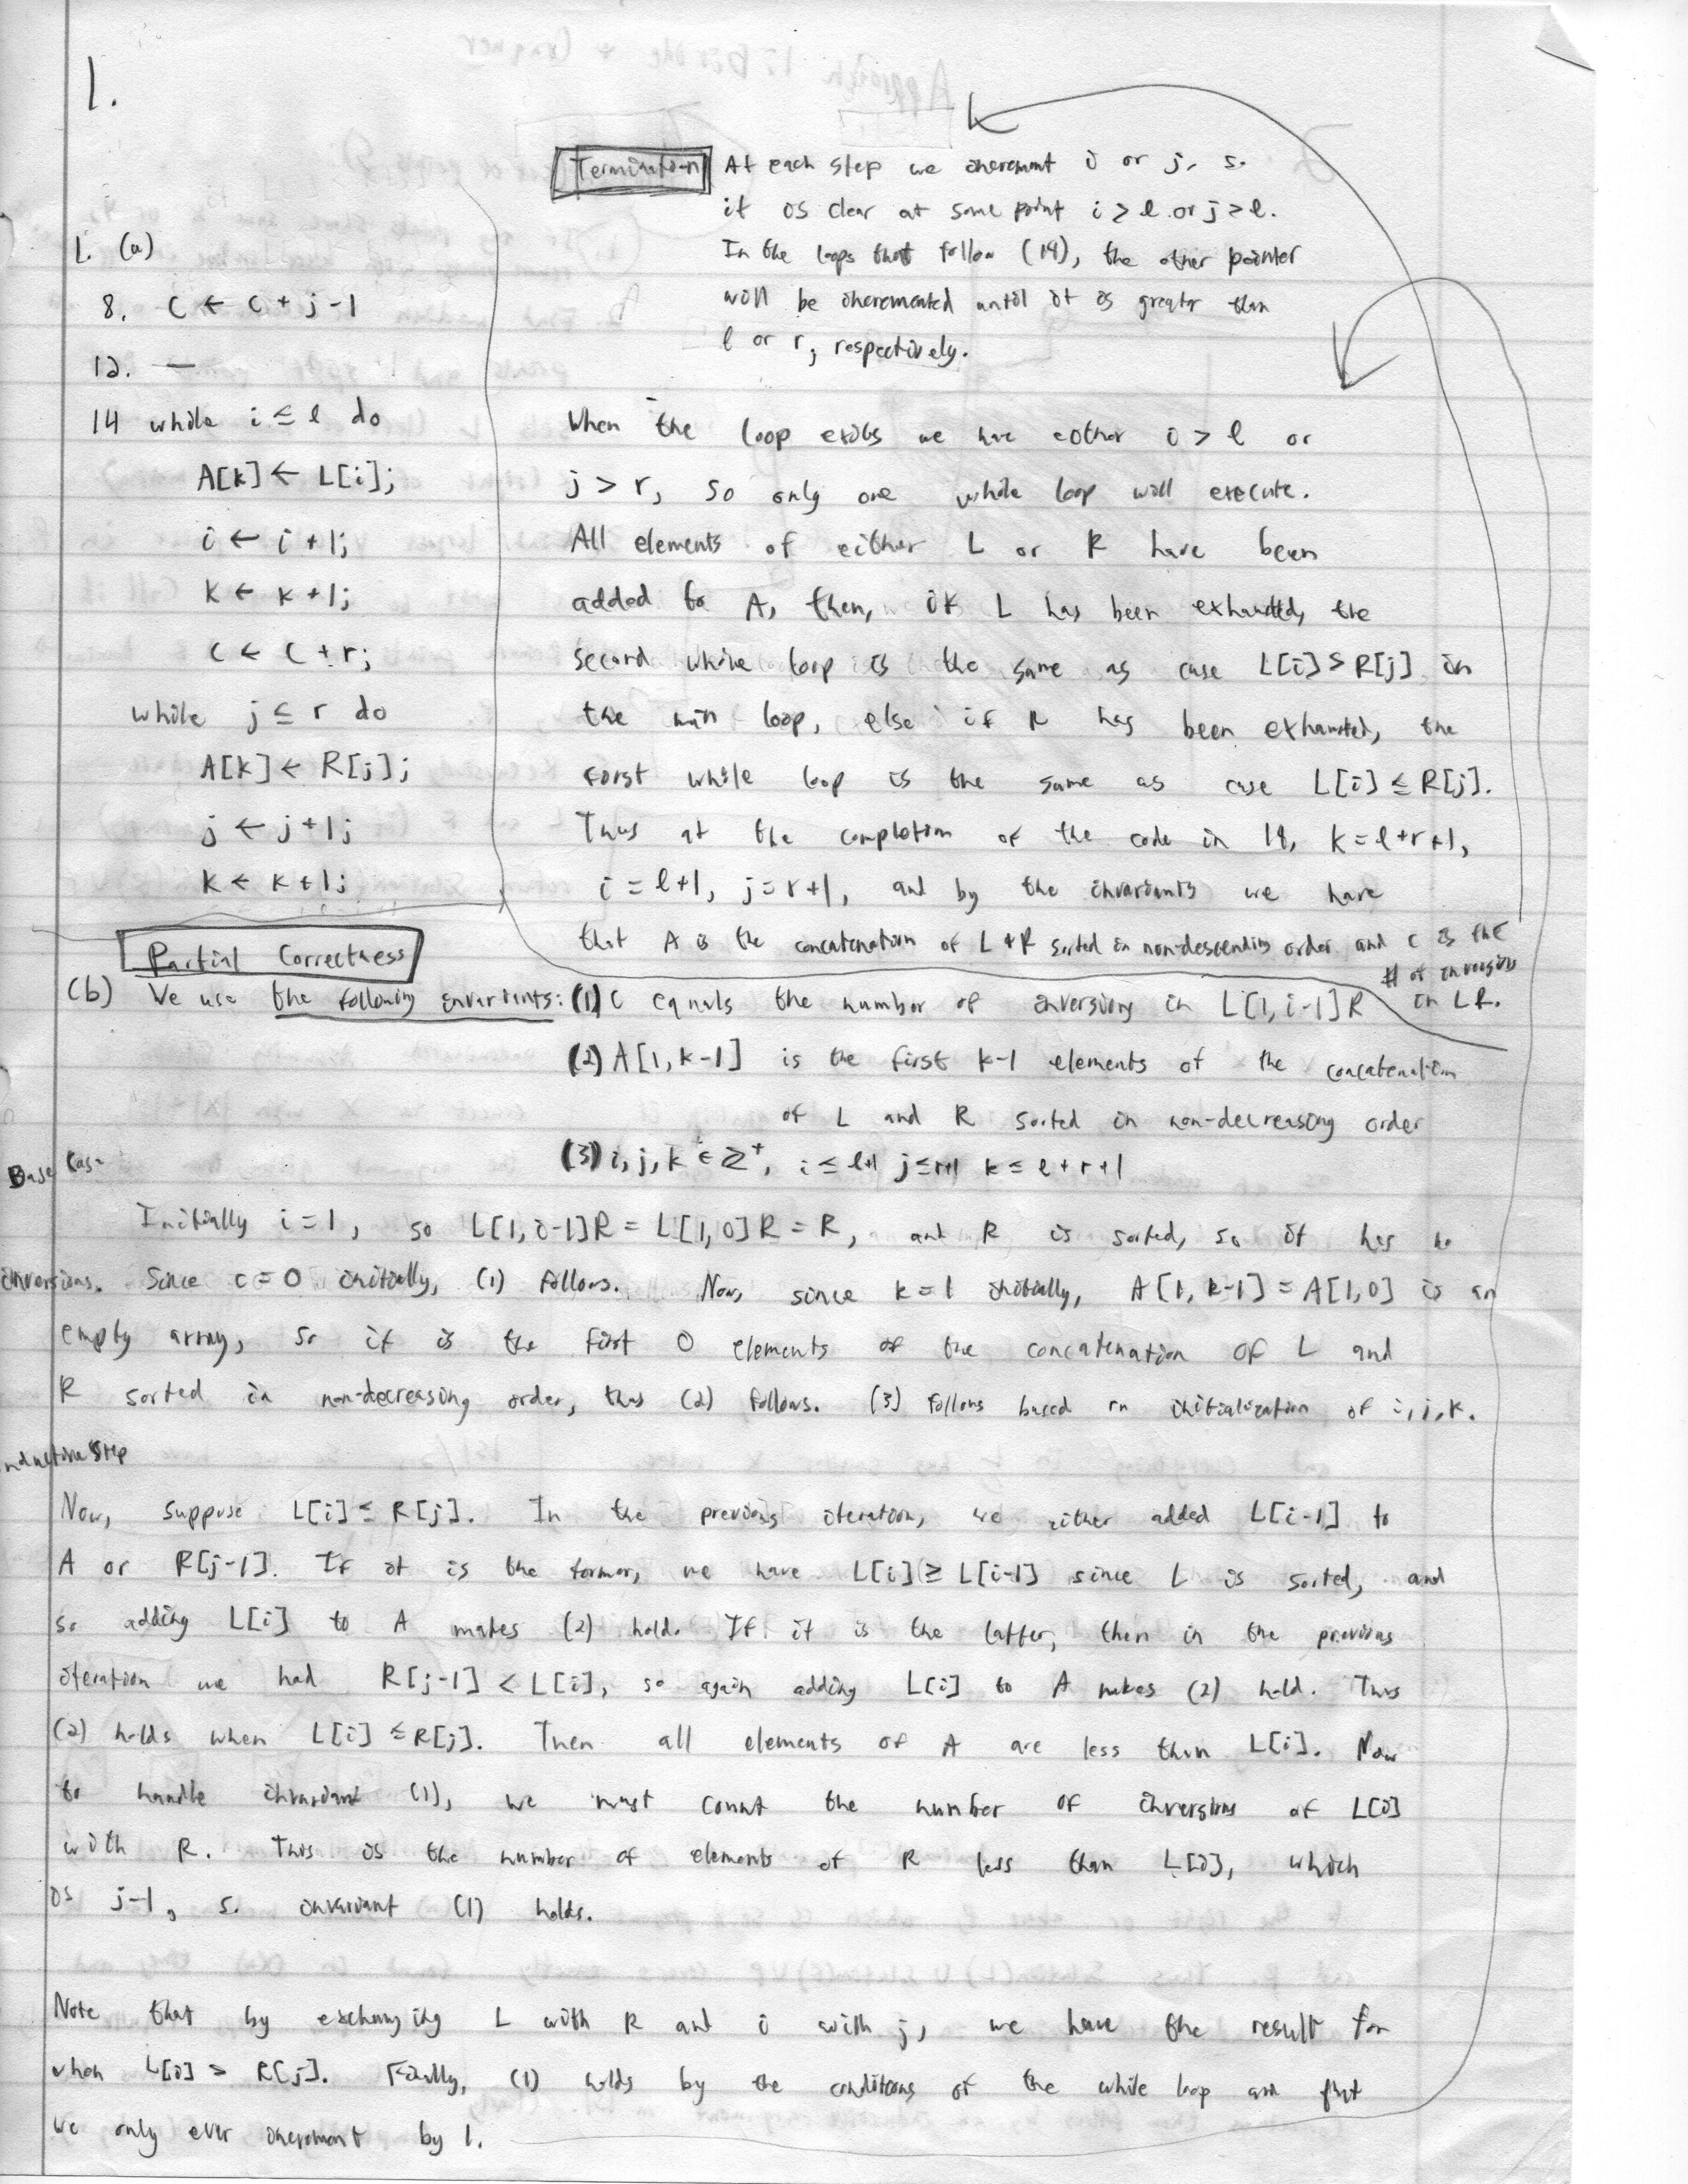 1.
1. (a)
8. C ← C + j-1
12. —
14 while i ≤ l do
A[k] ← L[i];
i ← i+1;
k ← k+1;
C ← C+r;
while j ≤ r do
A[k] ← R[j];
j ← j+1;
k ← k+1;
Termination At each step we increment i or j, so
it is clear at some point i > l or j > l.
In the loops that follow (14), the other pointer
will be incremented until it is greater than
l or r, respectively.
When the loop exits we have either i > l or
j > r, so only one while loop will execute.
All elements of either L or R have been
added to A, then, if L has been exhausted, the
second while loop is the same as case L[i] > R[j] in
the main loop, else if R has been exhausted, the
first while loop is the same as case L[i] ≤ R[j].
Thus at the completion of the code in 14, k = l+r+1,
i = l+1, j = r+1, and by the invariants we have
that A is the concatenation of L + R sorted in non-descending order and C is the
# of inversions
in LR.
Partial Correctness
(b) We use the following invariants: (1) C equals the number of inversions in L[1, i-1]R
(2) A[1, k-1] is the first k-1 elements of the concatenation
of L and R sorted in non-decreasing order
(3) i, j, k ∈ ℤ⁺, i ≤ l+1 j ≤ r+1 k ≤ l + r + 1
Base Case
Initially i = 1, so L[1, i-1]R = L[1, 0]R = R, and R is sorted, so it has no
inversions. Since c = 0 initially, (1) follows. Now, since k = 1 initially, A[1, k-1] = A[1,0] is an
empty array, so it is the first 0 elements of the concatenation of L and
R sorted in non-decreasing order, thus (2) follows. (3) follows based on initialization of i, j, k.
Inductive Step
Now, suppose L[i] ≤ R[j]. In the previous iteration, we either added L[i-1] to
A or R[j-1]. If it is the former, we have L[i] ≥ L[i-1] since L is sorted, and
so adding L[i] to A makes (2) hold. If it is the latter, then in the previous
iteration we had R[j-1] < L[i], so again adding L[i] to A makes (2) hold. Thus
(2) holds when L[i] ≤ R[j]. Then all elements of A are less than L[i]. Now
to handle invariant (1), we must count the number of inversions of L[i]
with R. This is the number of elements of R less than L[i], which
is j-1, so invariant (1) holds.
Note that by exchanging L with R and i with j, we have the result for
when L[i] > R[j]. Finally, (1) holds by the conditions of the while loop and that
we only ever increment by 1.